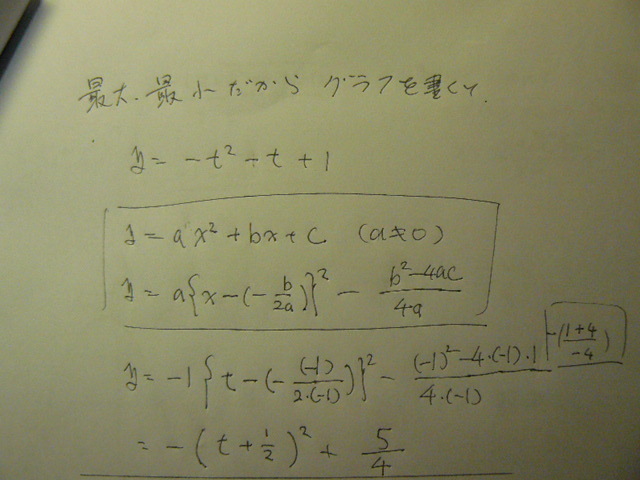 最大・最小だから グラフを書くヽ.
y = -t² - t + 1
y = ax² + bx + c (a≠0)
y = a{x-(-b/2a)}² - (b²-4ac)/4a
y = -1{t-(-(-1)/2·(-1))}² - ((-1)²-4·(-1)·1)/4·(-1) -((1+4)/-4)
= -(t+1/2)² + 5/4